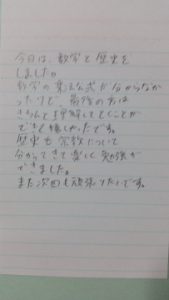 今日は、数学と歴史を
しました。
数学の乗法公式が分からなか
ったけど、最後の方は
きちんと理解してとくことが
できて嬉しかったです。
歴史も宗教について
分かってきて楽しく勉強が
できました。
また次回も頑張りたいです。